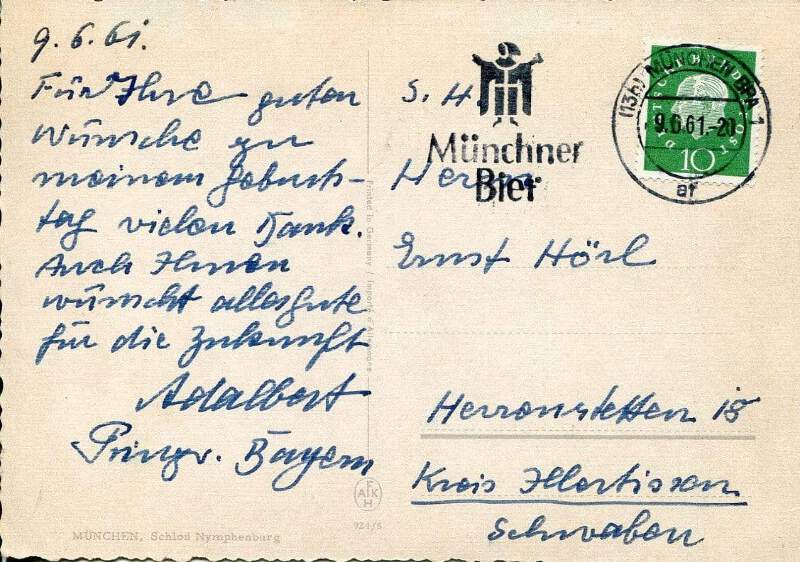 9.6.61.
Für Ihre guten
Wünsche zu
meinem Geburts-
tag vielen Dank.
Auch Ihnen
wünscht alles gute
für die Zukunft
Adalbert
Prinz v. Bayern
MÜNCHEN, Schloß Nymphenburg
Printed in Germany / Importé d'Allemagne
AFKH
924/6
Münchner
Bier
(13b) MÜNCHEN BPA 1
9.6.61.-20
at
DEUTSCHE BUNDESPOST
10
S. H.
Herrn
Ernst Hörl
Herrenstetten 18
Kreis Illertissen
Schwaben